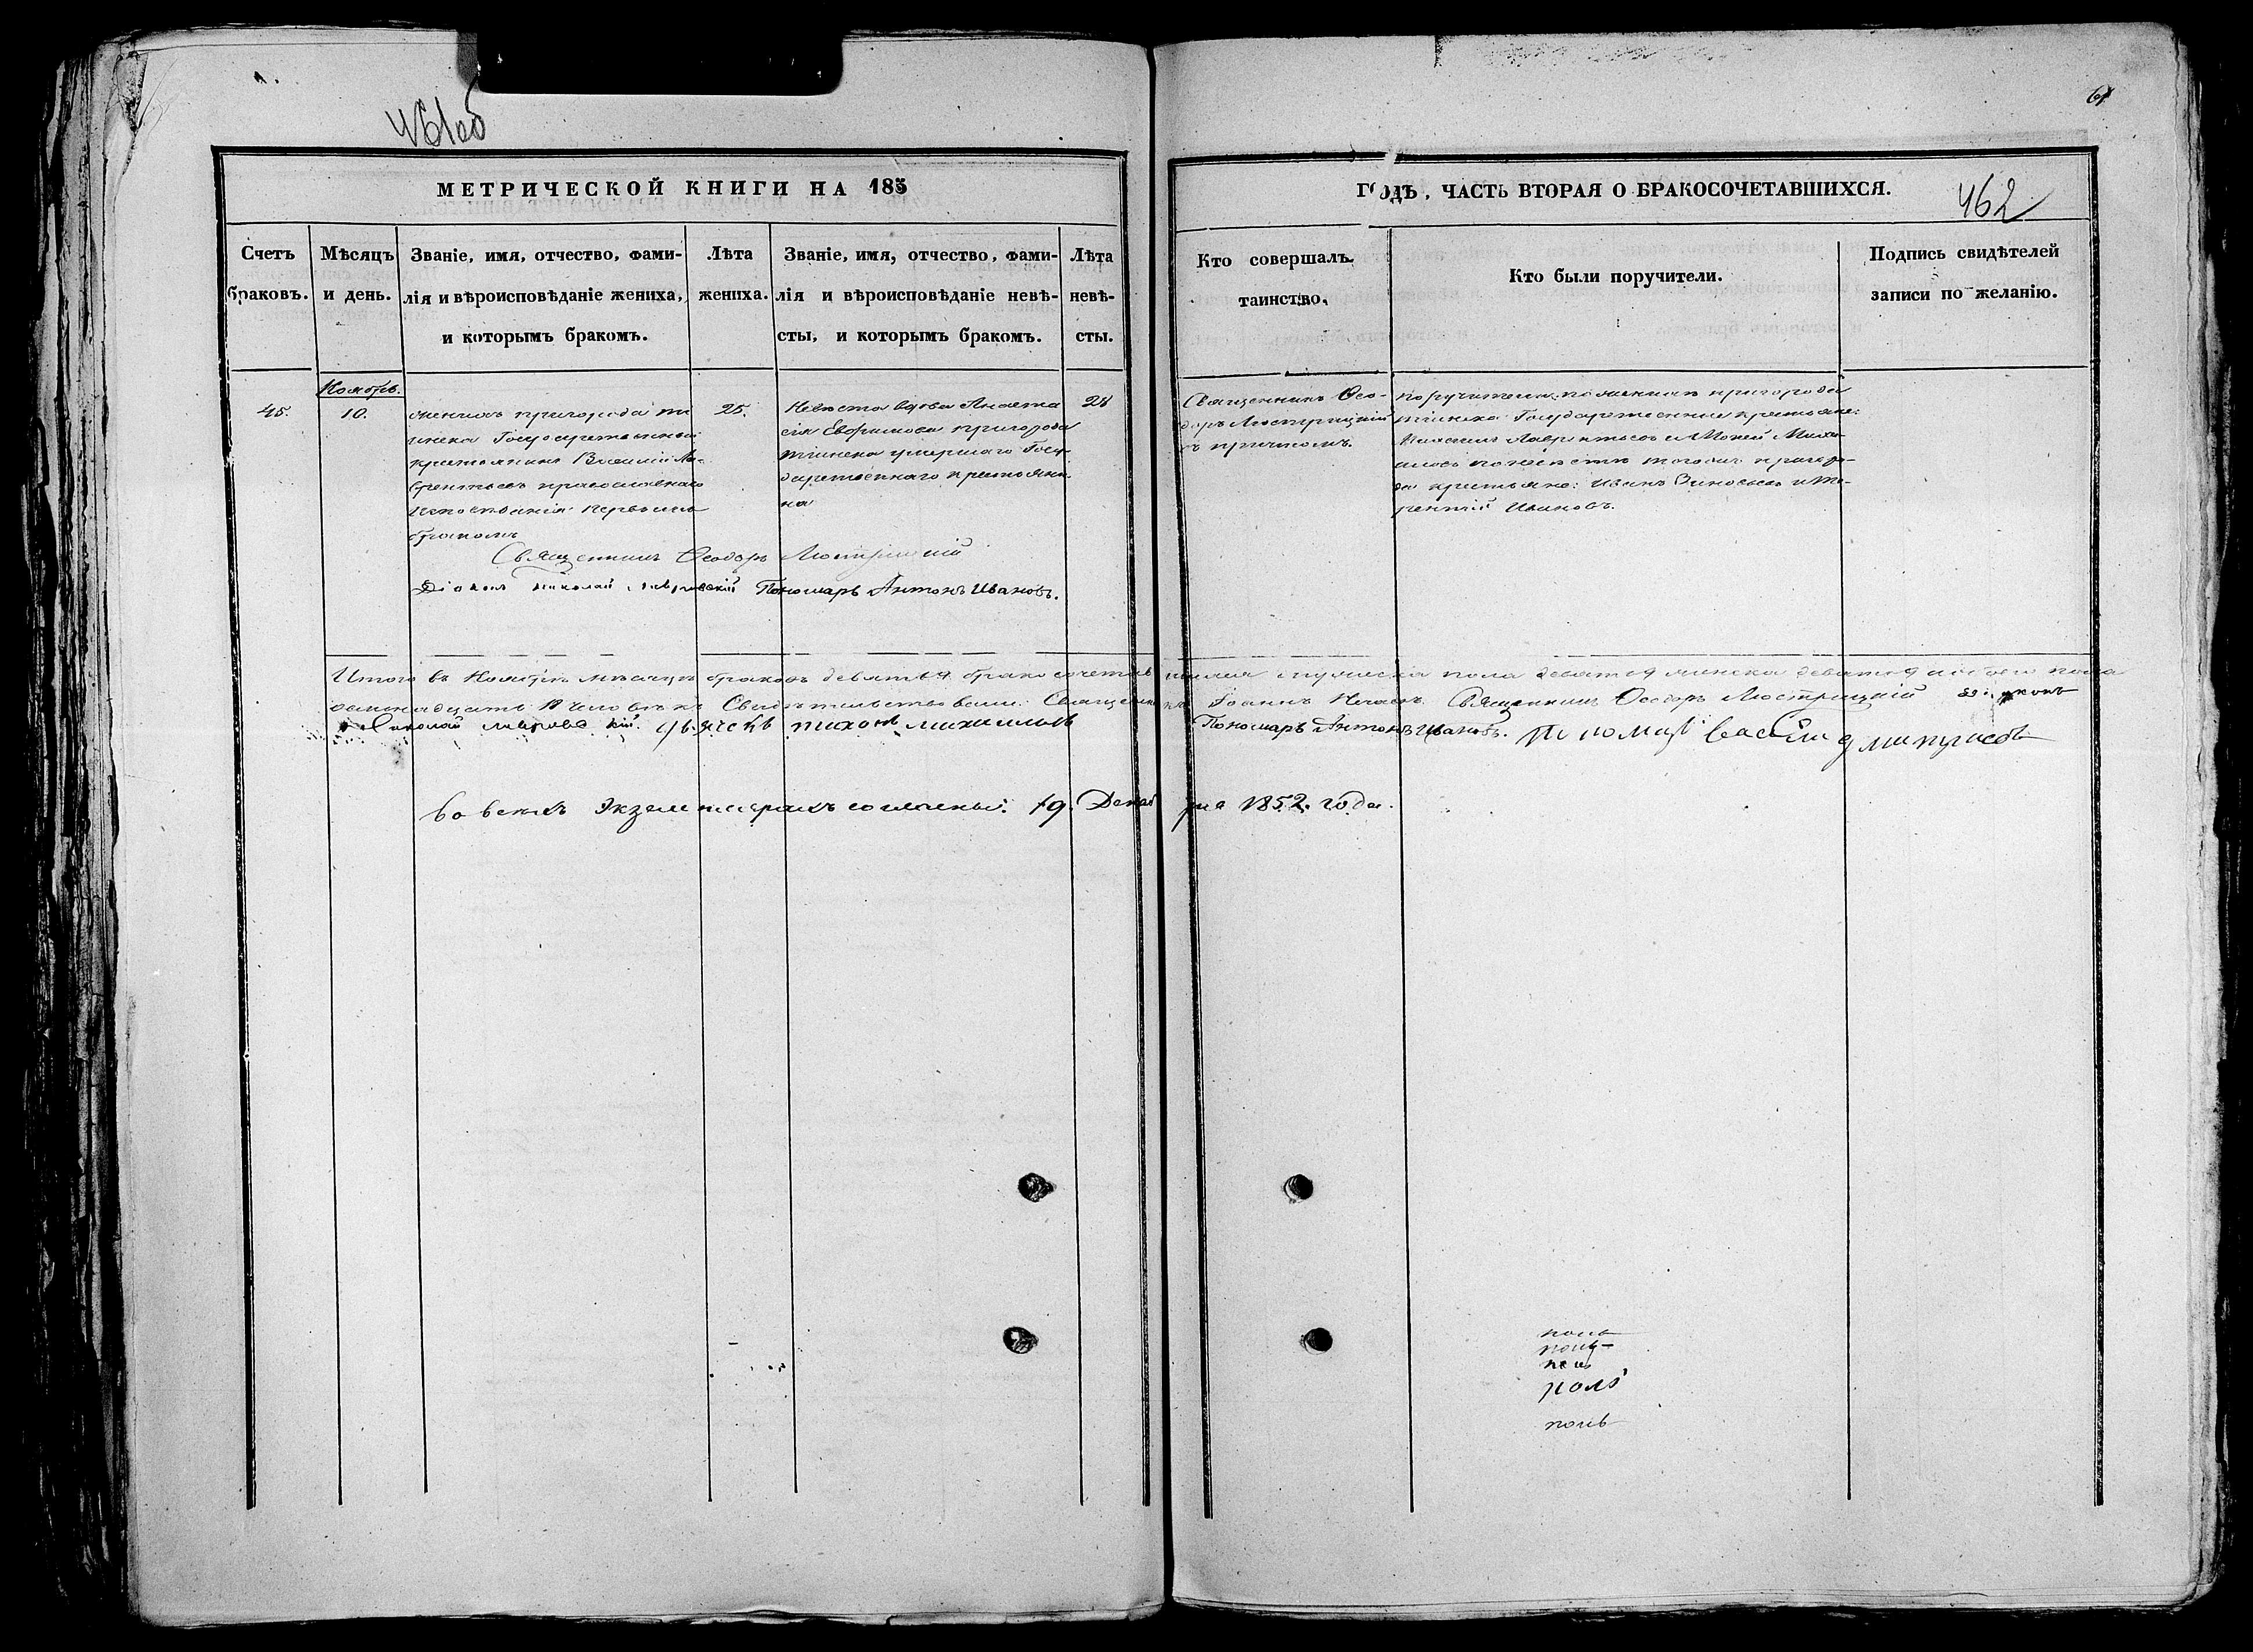 461об
61
МЕТРИЧЕСКОЙ КНИГИ НА 185
ГОДЪ, ЧАСТЬ ВТОРАЯ О БРАКОСОЧЕТАВШИХСЯ.
462
Счетъ
браковъ.
Мѣсяцъ
и день.
Званіе, имя, отчество, фами-
лія и вѣроисповѣданіе жениха,
и которымъ бракомъ.
Лѣта
жениха.
Званіе, имя, отчество, фами-
лія и вѣроисповѣданіе невѣ-
сты, и которымъ бракомъ.
Лѣта
невѣ-
сты.
Кто совершалъ
таинство.
Кто были поручители.
Подпись свидѣтелей
записи по желанію.
Ноябрь.
45.
10.
женихъ пригорода ти
инска Государственный
крестьянинъ Василій Ла-
врентьевъ православнаго
исповѣданія первымъ
бракомъ
25.
Невѣста вдова Анаста
сія Ефимова пригорода
тіинска умершаго Госу-
дарственнаго крестьяни-
на
28
Священникъ Ѳео-
доръ Люстрицкій
съ причтомъ.
поручители: по женихѣ пригорода
тіинска Государственные крестьяне:
Лаврентьевъ и Мокей Михаи-
ловъ по невѣстѣ того же приго ро-
да крестьяне: Иванъ Зиновьевъ и Те-
рентій Ивановъ.
Священникъ Ѳеодоръ Люстрицкій
Діаконъ Николай Пономарь Антонъ Ивановъ.
Итого въ Ноябрѣ мѣсяцѣ браковъ девять 9. бракосочетавшихся мужеска пола девять 9 женска девять 9 обоего пола
осьмнадцать 18 человѣкъ. Свидѣтельствовали: Священникъ Іоаннъ Священникъ Ѳеодоръ Люстрицкій діаконъ
Николай дьячекъ тихонъ михаиловъ Пономарь Антонъ Ивановъ. Пономарь василий
во всѣхъ экземплярахъ 19. Декабря 1852. года.
поль
поль
поль
поль